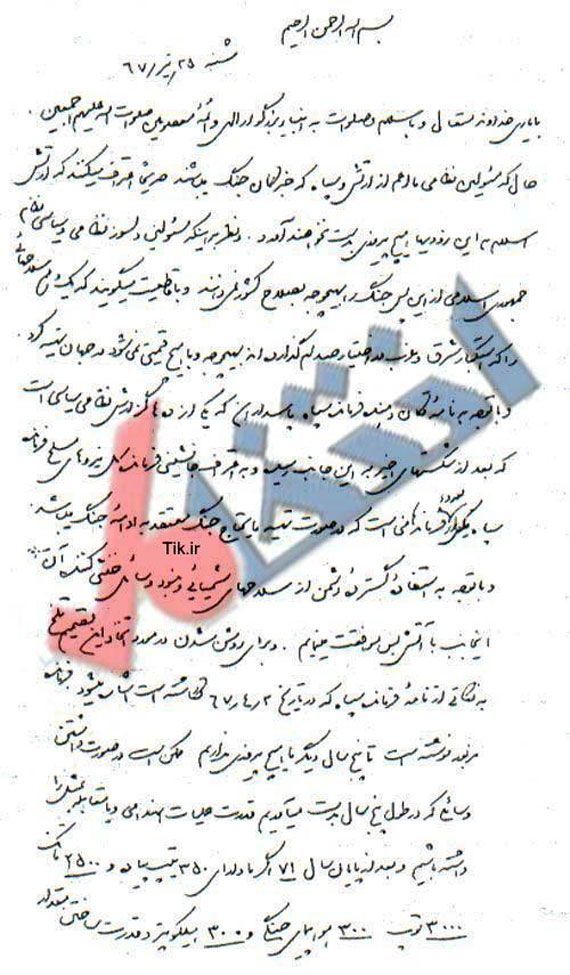 بسم الله الرحمن الرحیم
شنبه ۲۵/تیر/۶۷
با یاری خداوند متعال و با سلام و صلوات به انبیاء بزرگوار الهی و ائمهٔ معصومین صلوات الله علیهم اجمعین .
حال که مسئولین نظامی ما اعم از ارتش و سپاه که خبرگان جنگ میباشند صریحاً اعتراف میکنند که ارتش
اسلام به این زودیها هیچ پیروزی بدست نخواهند آورد . و نظر باینکه مسئولین دلسوز نظامی و سیاسی نظام
جمهوری اسلامی از این پس جنگ را بهیچوجه بصلاح کشور نمی‌دانند و با قاطعیت میگویند که یک دهم سلاحهائی
را که استکبار شرق و غرب در اختیار صدام گذارده‌اند بهیچوجه و با هیچ قیمتی نمی‌شود در جهان تهیه کرد
و با توجه به نامهٔ تکان دهندهٔ فرماندهٔ سپاه پاسداران که یکی از ده‌ها گزارش نظامی سیاسی است
که بعد از شکستهای اخیر به این جانب رسیده و به اعتراف جانشینی فرمانده کل نیروهای مسلح فرمانده
سپاه یکی از معدود فرماندهانی است که در صورت تهیه مایحتاج جنگ معتقد به ادامهٔ جنگ میباشد
و با توجه به استفادهٔ گستردهٔ دشمن از سلاحهای شیمیائی و نبود وسائل خنثی کنندهٔ آن
اینجانب با آتش بس موافقت مینمایم . و برای روشن شدن در مورد اتخاذ این تصمیم تلخ
به نکاتی از نامهٔ فرماندهٔ سپاه که در تاریخ ۲/۴/۶۷ نگاشته است اشاره میشود فرمانده
مزبور نوشته است تا پنج سال دیگر ما هیچ پیروزی نداریم ممکن است در صورت داشتن
وسائلی که در طول پنج سال بدست میآوریم قدرت عملیات انهدامی و یا مقابله بمثل را
داشته باشیم و بعد از پایان سال ۷۱ اگر ما دارای ۳۵۰ تیپ پیاده و ۲۵۰۰ تانک
۳۰۰۰ توپ ۳۰۰ هواپیمای جنگی و ۳۰۰ هلیکوپتر و قدرت ساختن مقدار
انتقام
Tik.ir